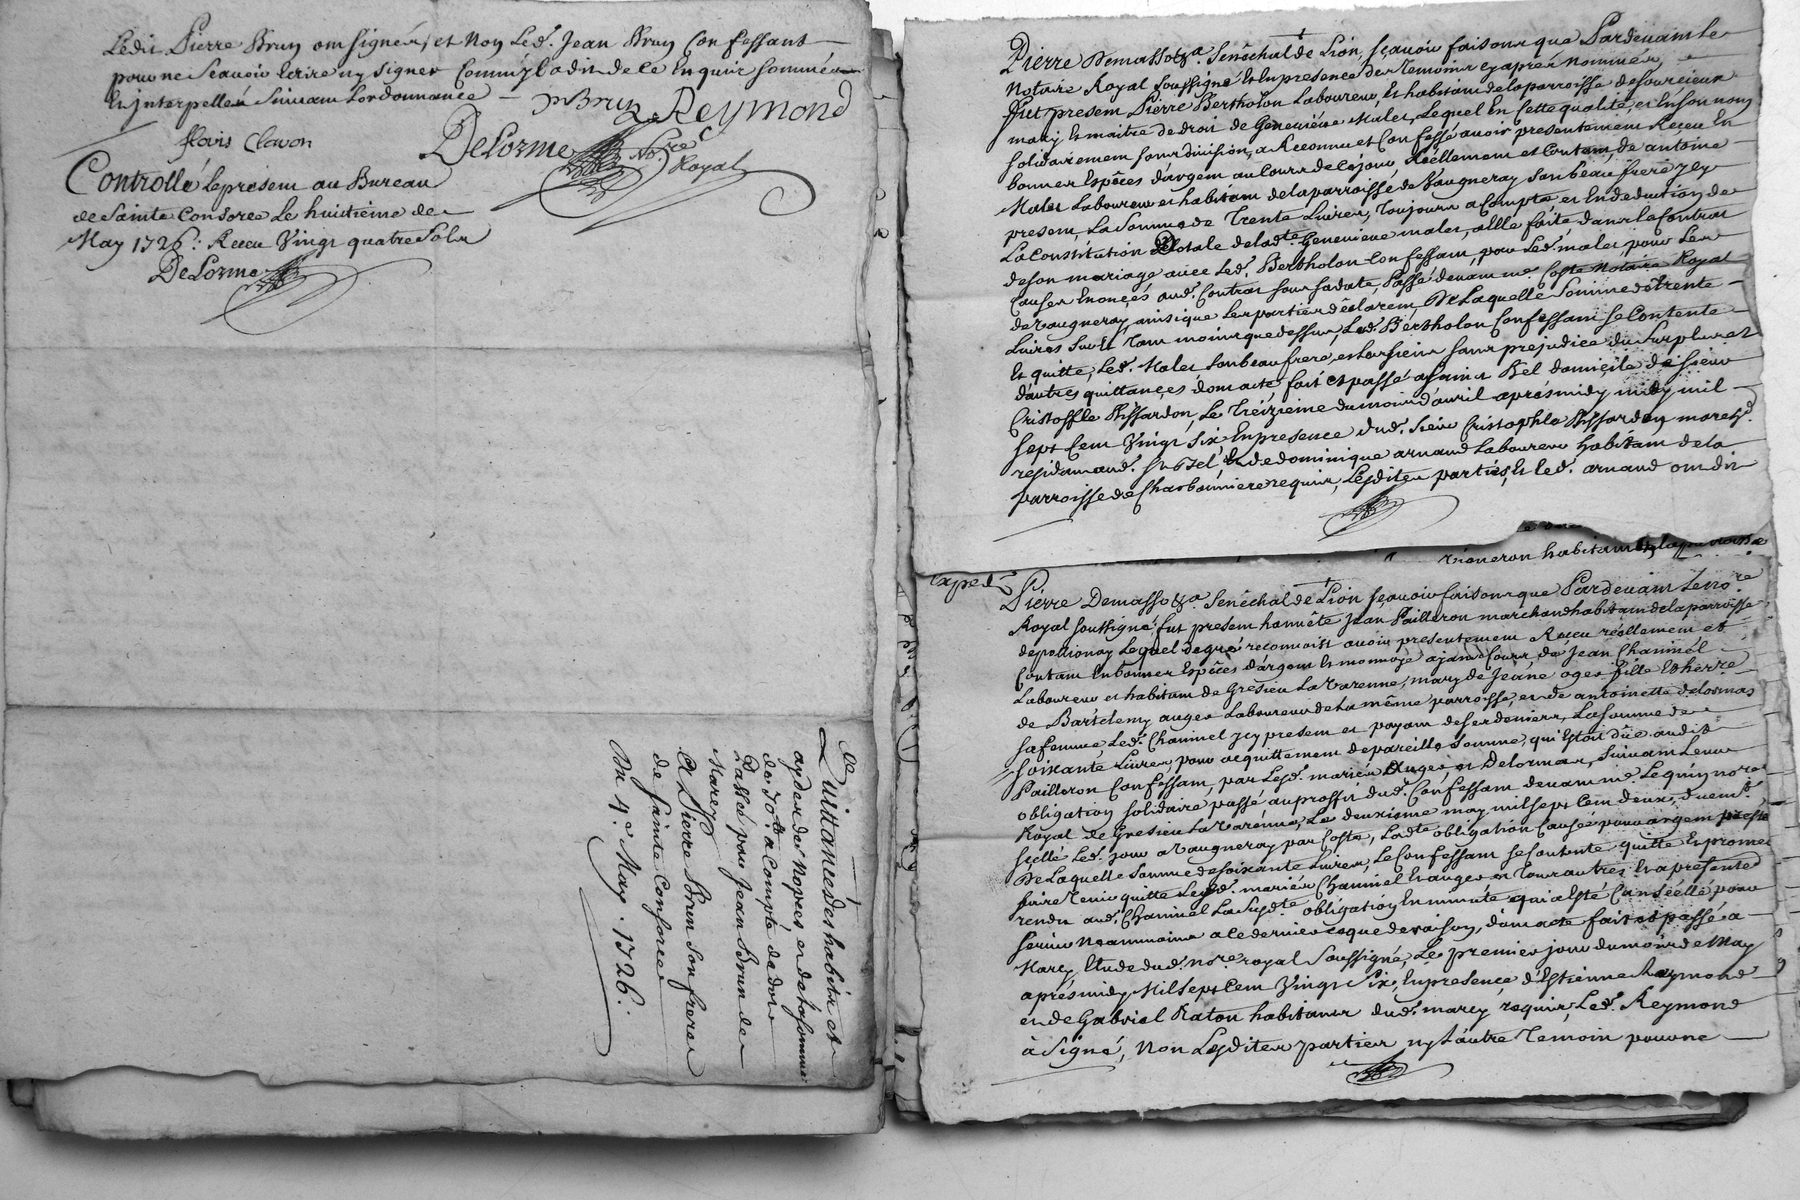 Ledit Pierre Brun ont signé, et Non Led. Jean Brun Confessant
pour ne sçavoir Ecrire ny signer Comm'il a dit de ce Enquis sommé
Et interpellé suivant Lordonnance
P Brun Reymond
floris Clavon
Delorme No.re Royal
Controllé le present au Bureau
de Sainte Consorce Le huitième de
May 1726: Receu Vingt quatre Sols
Delorme
Quittance des habits et
de Nopces, en de la somme
de 70 tt a Compte de dot
Passée pour Jean Brun de
Marcy
a Pierre Brun son frere
de Sainte Consorce
Du 4.e May. 1726.
Pierre Demasso &a. Sénéchal de Lion, sçavoir faisons que Pardevant le
Notaire Royal Soussigné Et En presence des Temoins cy après Nommés,
Fut present Pierre Bertholon Laboureur, Et habitant de la parroisse de sourcieux
mary Et maitre de droit de Geneviéve Malet, Lequel En Cette qualité, et En son nom
solidairement sans division, a Reconnu et Confessé avoir presentement Receu En
bonnes Espêces d'argent au Cours de ce jour Réellement et Contant, de antoine
Malet Laboureur et habitant de la parroisse de Vaugneray son beau frere icy
present, La Somme de Trente Livres, Toujours a Compte et En deduction de
La Constitution Dotale de lad.te Genevieve malet, a Elle faite, dans le Contrat
de son mariage avec Led. Bertholon Confessant, par Led. malet, pour Les
Causes Enonçés aud. Contrat sous sa date, Passé devant me. Coste Notaire Royal
de Vaugneray, ainsi que Les parties déclarent, De Laquelle Somme de trente
Livres Led. Bertholon Confessant se Contente
Et quitte, Led. Malet son beau frere, et Les siens sans prejudice du Surplus et
d'autres quittances, dont acte, fait et passé a Saint Bel domicile de sieur
Cristoffle Chissardon, Le Treizieme du mois d'avril aprés midy mil
sept Cent Vingt six En presence dud. sieur Cristophle Chissardon march.d
residant aud. St Bel, Et de dominique arnaud Laboureur habitant de la
parroisse de Charbonniere requis, Lesdites parties, Et led. arnaud ont dit
Vigneron habitant de la parroisse
Exped.
Pierre Demasso &a. Sénéchal de Lion, sçavoir faisons que Pardevant Le No.re
Royal Soussigné, fut present honnête Jean Pailleron marchand habitant de la parroisse
de pollionay Lequel de gré reconnoist avoir presentement Receu réellement et
Contant En bonnes Espêces d'argent Et monnoye ajant Cours, de Jean Chaninel
Laboureur et habitant de Grésieu La Varenne, mary de Jeane oger fille Et herre
de Bartelemy auger Laboureur de La même parroisse, et de antoinette delormas
sa femme, Led. Chaninel icy present et payant de ses deniers, La somme de
soixante Livres, pour acquittement de pareille somme, qui Estoit dûe audit
Pailleron Confessant, par Lesd. mariés Auger, et Delormas, Suivant Leur
obligation solidaire passé au proffit dud. Confessant devant me. Lequin no.re
Royal de Gresieu La Varenne, Le deuxieme may mil sept Cent deux, duem.t
scellé Led. jour a Vaugneray par Coste, Lad.te obligation Causée pour argent presté
De Laquelle Somme de soixante Livres, Le Confessant se Contente, quitte et promet
faire Tenir quitte Lesd. mariés Chaninel Et auger et Tous autres, Et a presentement
rendu aud. Chaninel La susd.te obligation En minute, qui a Esté Cancellée pour
servir Neanmoins a ce dernier ce que de raison, dont acte fait et passé a
Marcy Etude dud. no.re royal Soussigné, Le premier jour du mois de May
après midy Mil sept Cent Vingt Six, En presence d'Estienne Reymond
et de Gabriel Raton habitans dud. marcy requis, Led. Reymond
à Signé, Non Lesdites parties, ny L'autre Temoin pour ne